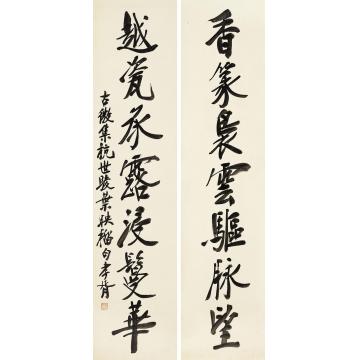 香篆裊雲驅脉望
越瓷承露浸鬘華
古微集杭世駿葉映榴句孝胥